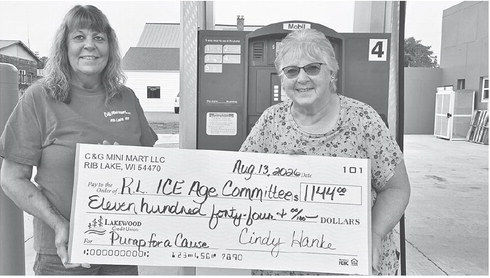 Mobil
4
C&G Mini Mart LLC
Rib Lake, WI
C&G MINI MART LLC
RIB LAKE, WI 54470
Aug 13, 2026 Date
101
Pay to the
Order of R.L. ICE Age Committee $ 1144 00
Eleven hundred forty-four & 00/100 DOLLARS
LAKEWOOD
Credit Union
For Pump for a Cause
Cindy Hanke